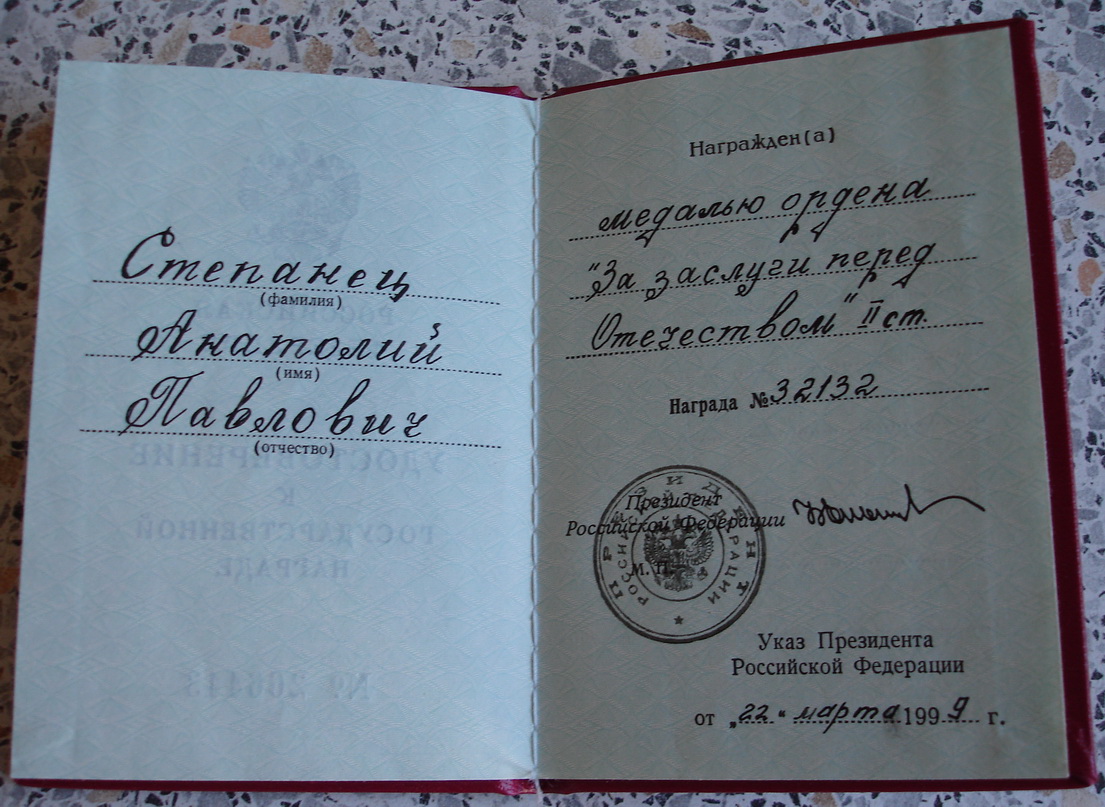 Степанец
(фамилия)
Анатолий
(имя)
Павлович
(отчество)
РОССИЙСКАЯ
УДОСТОВЕРЕНИЕ
К
ГОСУДАРСТВЕННОЙ
НАГРАДЕ
Награжден(а)
медалью ордена
"За заслуги перед
Отечеством" II ст.
Награда №32132
Президент
Российской Федерации
М. П.
ПРЕЗИДЕНТ
РОССИЙСКОЙ ФЕДЕРАЦИИ
Указ Президента
Российской Федерации
от „22“ марта 1999 г.